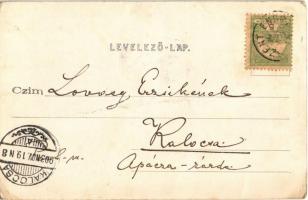 LEVELEZŐ-LAP.
Czim Lovveg Erzikének
Kalocsa
Apácza-zárda
KALOCSA
903 NOV. 19 N 8